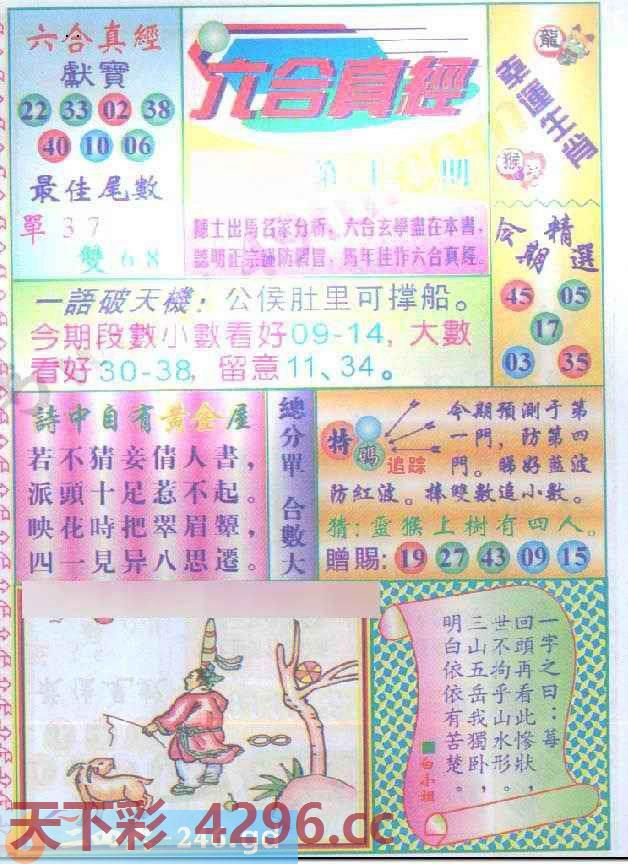 六合真經
獻寶
22 33 02 38
40 10 06
最佳尾數
單 3 7
雙 6 8
六合真經
第十 期
龍
幸運生肖
猴
陳士出馬名家分析，六合玄學盡在本書，
認明正宗謹防網冒，馬年佳作六合真經。
一語破天機：公侯肚里可撑船。
今期段數小數看好09-14，大數
看好30-38，留意11、34。
今期精選
45 05
17
03 35
詩中自有黃金屋
若不猜妾倩人書，
派頭十足惹不起。
映花時把翠眉顰，
四一見异八思遷。
總分單 合數大
特碼
追踪
今期預測于第
一門，防第四
門。睇好藍波
防紅波。捧雙數追小數。
猜：靈猴上樹有四人。
贈賜：19 27 43 09 15
一字之曰：莓
回頭再看此慘狀，
世不拘乎山水形，
三山五岳我獨卧。
明白依依有苦楚。
白小姐
天下彩 4296.cc
246.gd